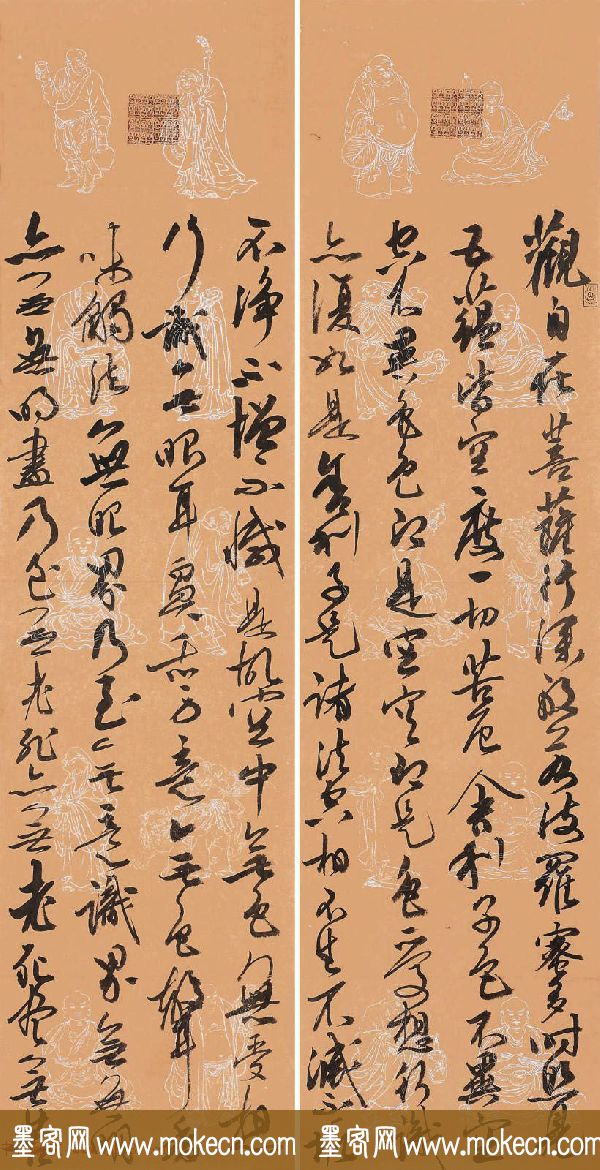 觀自在菩薩行深般若波羅蜜多時照見
五蘊皆空度一切苦厄舍利子色不異空
空不異色色即是空空即是色受想行識
亦復如是舍利子是諸法空相不生不滅不垢
不淨不增不減是故空中無色無受想
行識無眼耳鼻舌身意無色聲香
味觸法無眼界乃至無意識界無無明
亦無無明盡乃至無老死亦無老死盡無
墨客网 www.mokecn.com
墨客网 www.mokecn.com